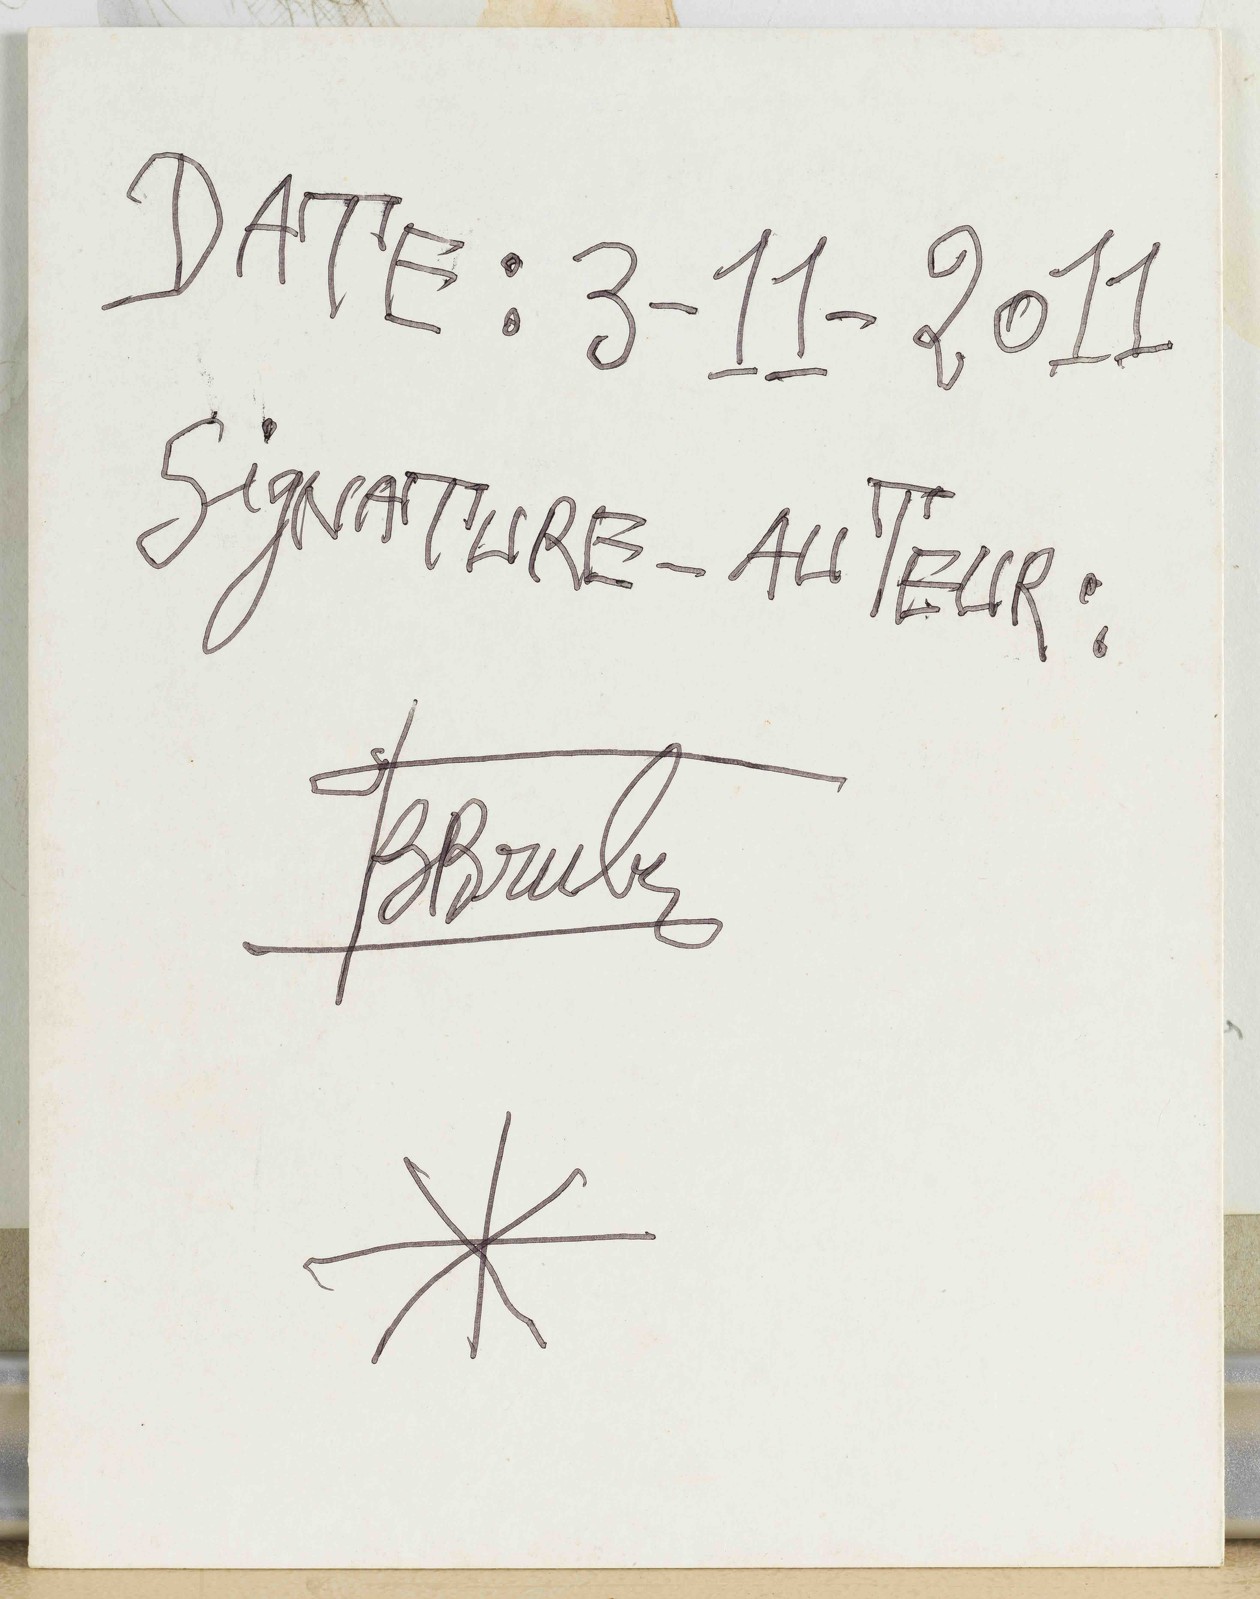 DATE : 3-11-2011
SiGNATURE - AUTEUR :